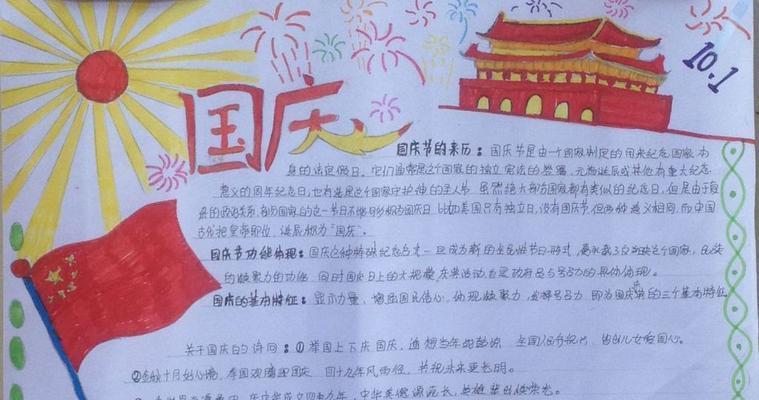 国庆
10.1
国庆节的来历：国庆节是由一个国家制定的用来纪念国家本
身的法定假日。它们通常是这个国家的独立、宪法的签署、元首诞辰或其他有重大纪念
意义的周年纪念日，也有些是这个国家守护神的圣人节。虽然绝大部分国家都有类似的纪念日，但是由于复
杂的政治关系，部分国家的这一节日不能够称为国庆日，比如美国只有独立日，没有国庆节，但两种意义相同。而中国
古代把皇帝即位、诞辰称为“国庆”。
国庆节功能体现：国庆这种特殊纪念方式一旦成为新的全民性节日形式，便承载了反映这个国家、民族
的凝聚力的功能。同时国庆日上的大规模庆典活动，也是政府号召力的具体体现。
国庆的基本特征：显示力量、增强国民信心，体现凝聚力，发挥号召力，即为国庆的三个基本特征
关于国庆的诗词：①举国上下庆国庆，
②金秋十月好心境，举国欢腾迎国庆。四十九年风雨征，共祝未来更光明。